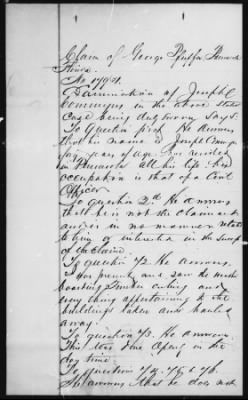 Claim of George
Howe.
No 1797.
Examination of Joseph
Conveyngs in the above stated
Case being duly sworn says.
To Question first He answers
that his name is Joseph
years of age. has resided
in all his life. his
occupation is that of a Civil
Officer.
To Question 2nd He answers
that he is not the claimant
and is in no manner related
to him or interested in the success
of the Claim.
To question 72. He answers.
Was present and saw the weather
boarding timber ceiling and
every thing appertaining to the
buildings taken and hauled
away.
To question 73. He answers.
This was done openly in the
day time.
To questions 74. 75 & 76.
He answers that he does not